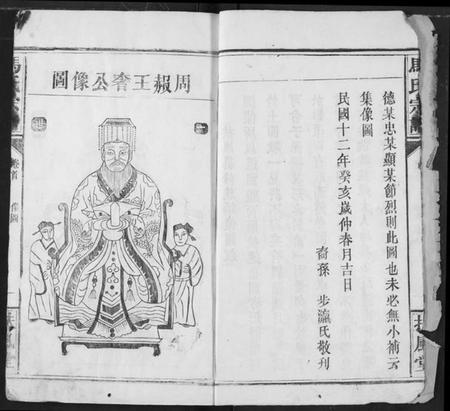 馬氏宗
扶風堂
德某忠某顯某節烈則此圖也未必無小補云
集像圖
民國十二年癸亥歲仲春月吉日
裔孫 步瀛氏敬刊
周赧王奢公像圖
卷首